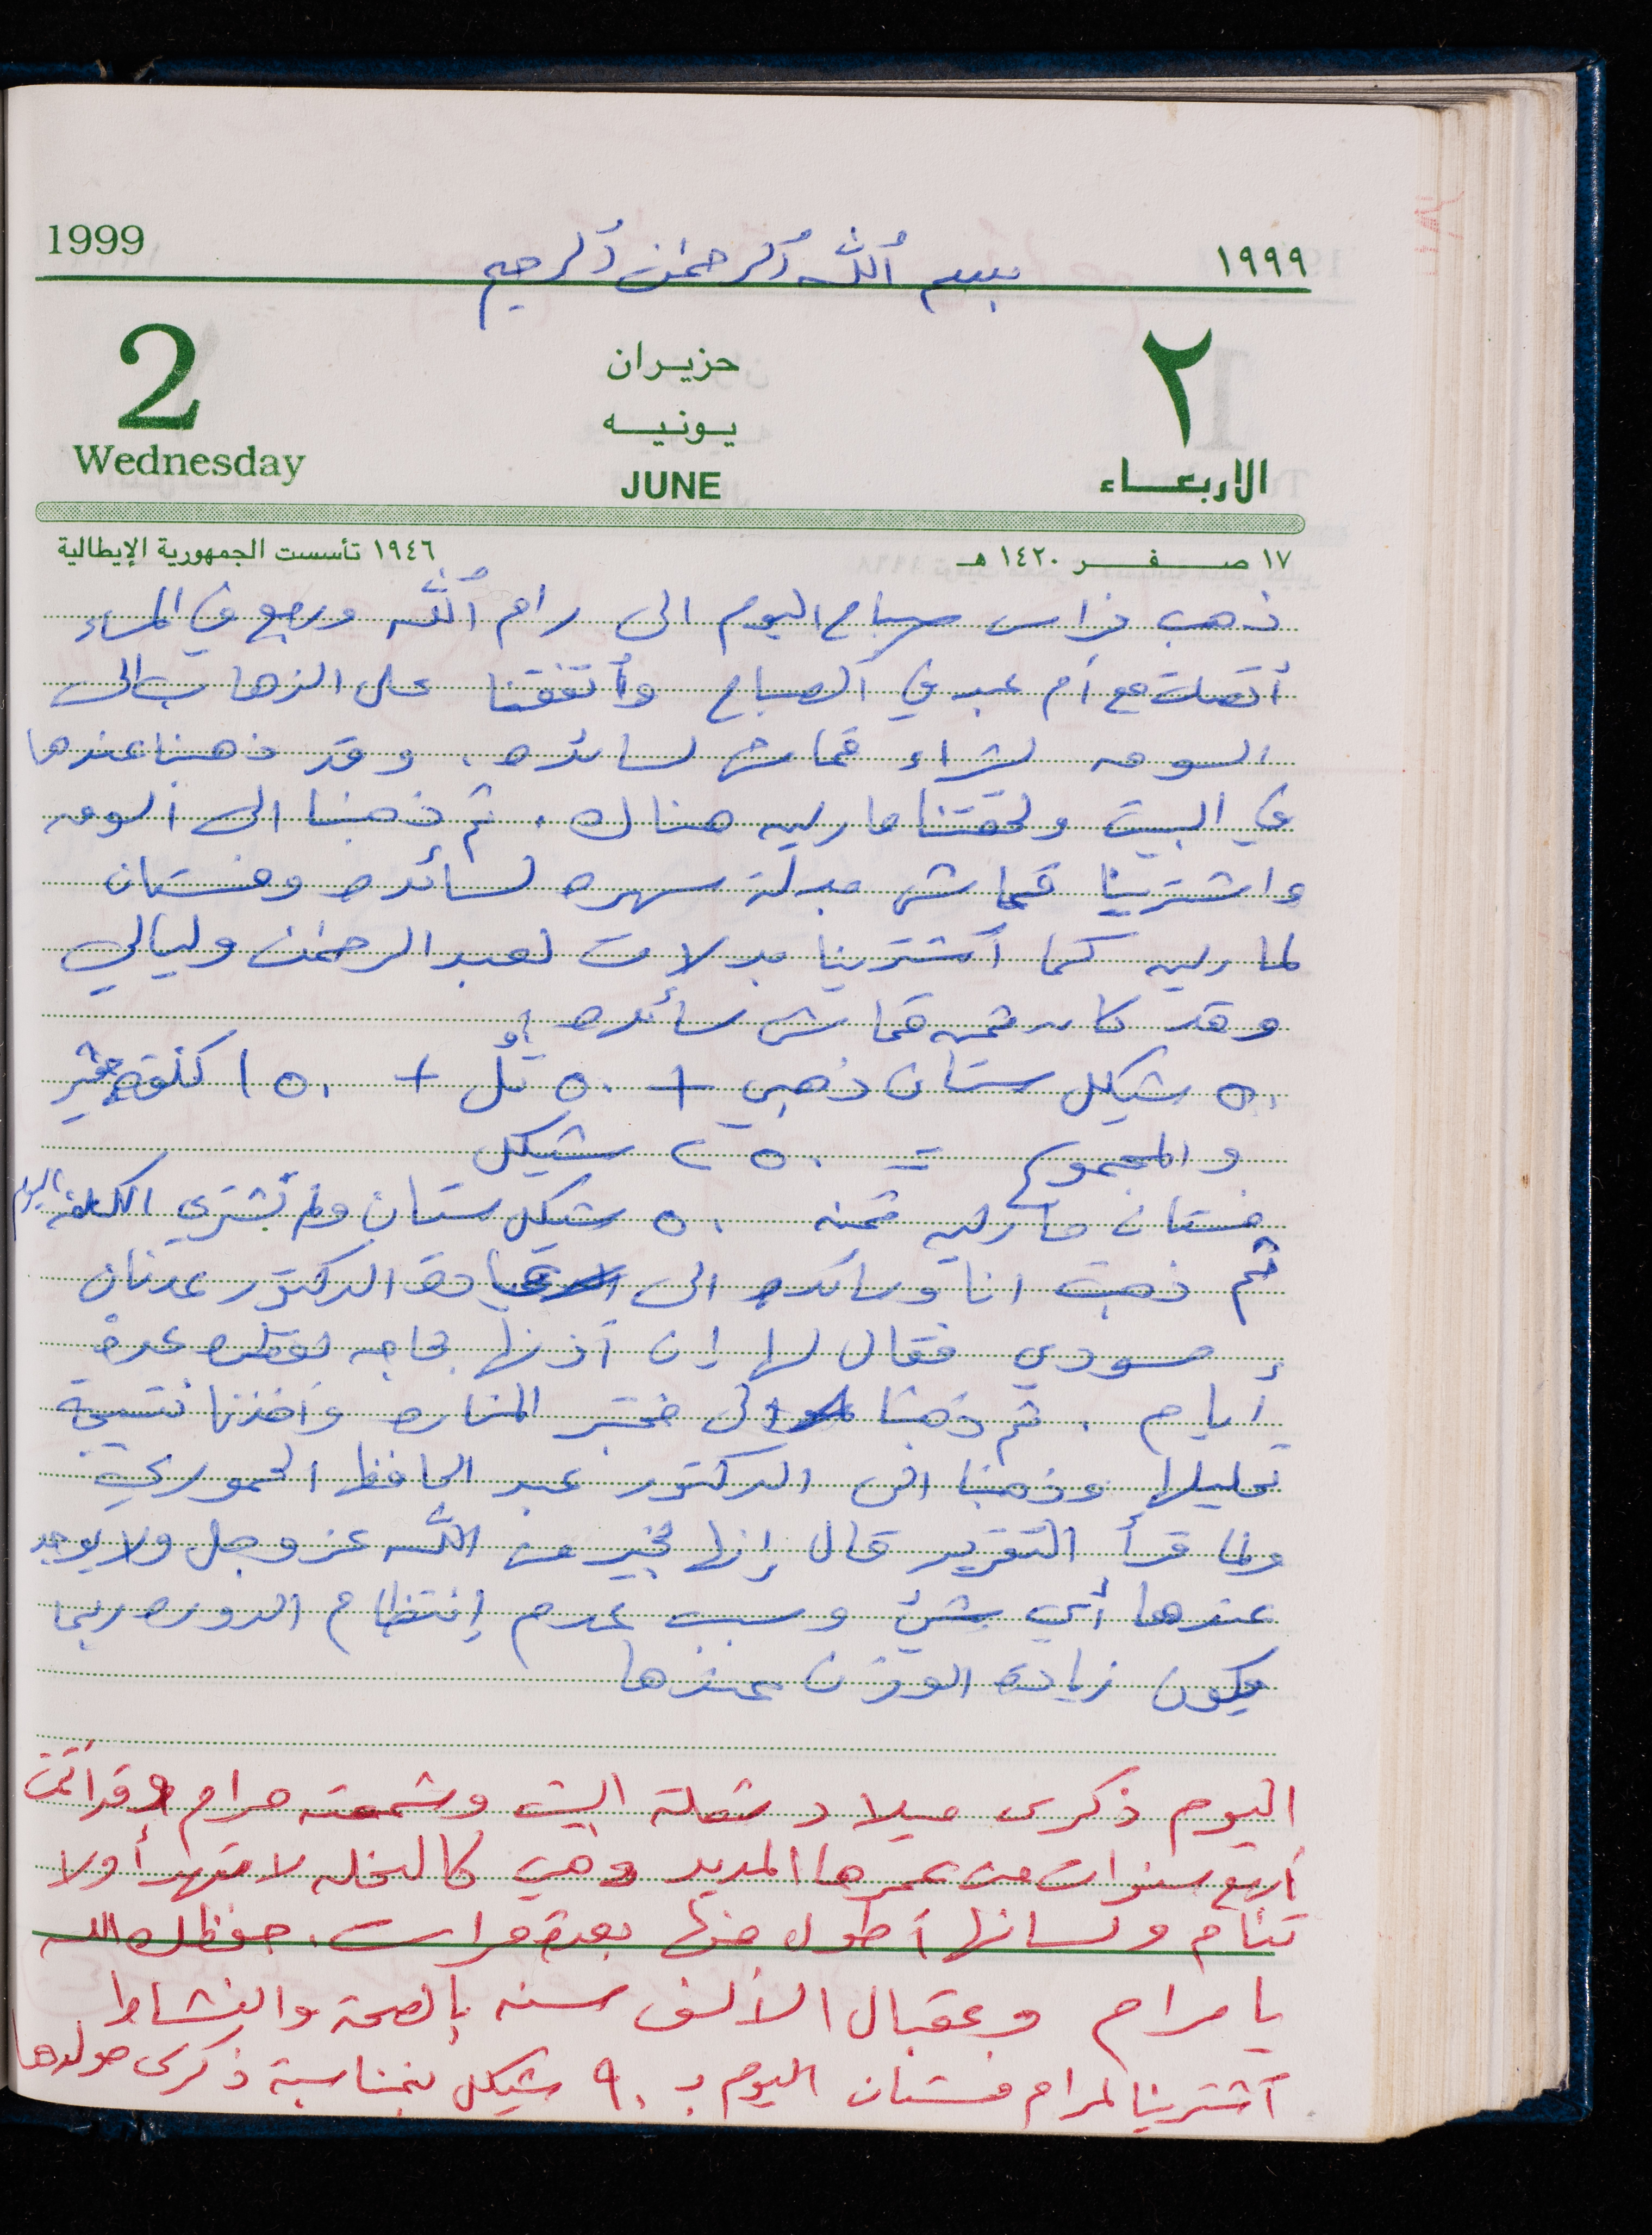 1999
١٩٩٩
بسم ٱلله ٱلرحمٰن ٱلرحيم
2
حزيران
٢
يونيه
Wednesday
JUNE
الاربعاء
١٩٤٦ تأسست الجمهورية الإيطالية
١٧ صفر ١٤٢٠ هـ
ذهب فراس صباح اليوم الى رام ٱلله ورجع في المساء
أتصلت مع أم عبد في الصباح وأتفقنا على الذهاب الى
السوق لشراء قماش لسائده. وقد ذهبنا عندها
في البيت ولحقتنا ماريه هناك. ثم ذهبنا الى السوق
واشترينا قماش بدلة سهره لسائده وفستان
لماريه كما أشترينا بدلات لعبد الرحمٰن وليالي
وقد كان ثمن قماش سائده
٥٠ شيكل ستان ذهبي + ٥٠ تُل + ١٥٠ كلفه
والمجموع = ٢٥٠ شيكل
فستان ماريه ثمنه ٥٠ شيكل ستان ولم تشتري الكلفه اليوم
ثم ذهبت انا وسائده الى عيادة الدكتور عدنان
إ سودي فقال لها ان أذنها بحاجه لقطره عدة
أيام. ثم ذهبنا الى مختبر المناره وأخذنا نتيجة
تحليلها وذهبنا الى الدكتور عبد الحافظ الحموري
ولما قرأ التقرير قال إنها بخير من الله عز وجل ولا يوجد
عندها أي شئ وسبب عدم إنتظام الدوره ربما
يكون زيادة الوزن عندها
اليوم ذكرى ميلاد شعلة البيت وشمعته مرام وقد أتمت
أربع سنوات من عمرها المديد وهي كالنحله لا تهدأ ولا
تنام ولسانها أطول منها بعدة مرات. حفظك الله
يا مرام وعقبال الألف سنه بالصحة والنشاط
أشترينا لمرام فستان اليوم بـ ٩٠ شيكل بمناسبة ذكرى مولدها